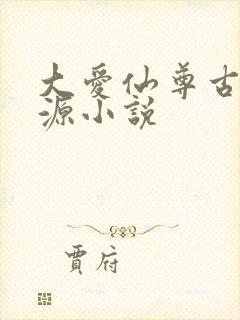 大愛仙尊古
源小説
賈府